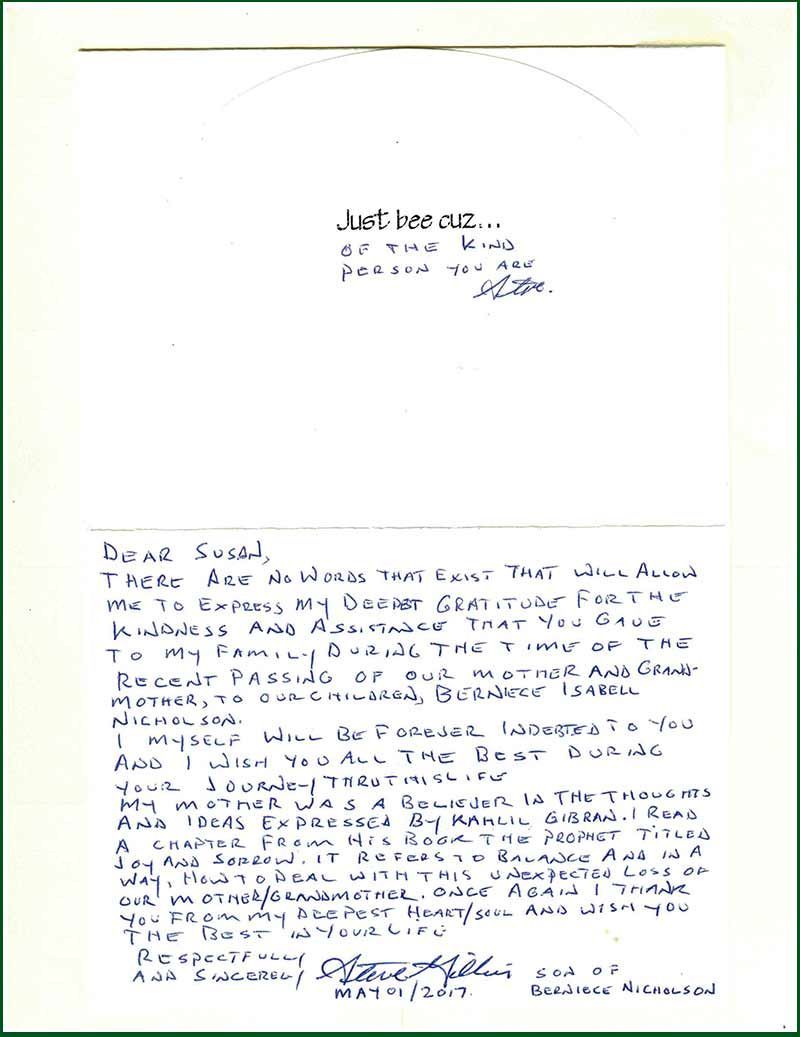 Just bee cuz...
OF THE KIND
PERSON YOU ARE
Steve.
DEAR SUSAN,
THERE ARE NO WORDS THAT EXIST THAT WILL ALLOW
ME TO EXPRESS MY DEEPEST GRATITUDE FOR THE
KINDNESS AND ASSISTANCE THAT YOU GAVE
TO MY FAMILY DURING THE TIME OF THE
RECENT PASSING OF OUR MOTHER AND GRAND-
MOTHER, TO OUR CHILDREN, BERNIECE ISABELL
NICHOLSON.
I MYSELF WILL BE FOREVER INDEBTED TO YOU
AND I WISH YOU ALL THE BEST DURING
YOUR JOURNEY THRU THIS LIFE
MY MOTHER WAS A BELIEVER IN THE THOUGHTS
AND IDEAS EXPRESSED BY KAHLIL GIBRAN. I READ
A CHAPTER FROM HIS BOOK THE PROPHET TITLED
JOY AND SORROW. IT REFERS TO BALANCE AND IN A
WAY, HOW TO DEAL WITH THIS UNEXPECTED LOSS OF
OUR MOTHER/GRANDMOTHER. ONCE AGAIN I THANK
YOU FROM MY DEEPEST HEART/SOUL AND WISH YOU
THE BEST IN YOUR LIFE
RESPECTFULLY
AND SINCERELY Steve SON OF
MAY 01/2017. BERNIECE NICHOLSON